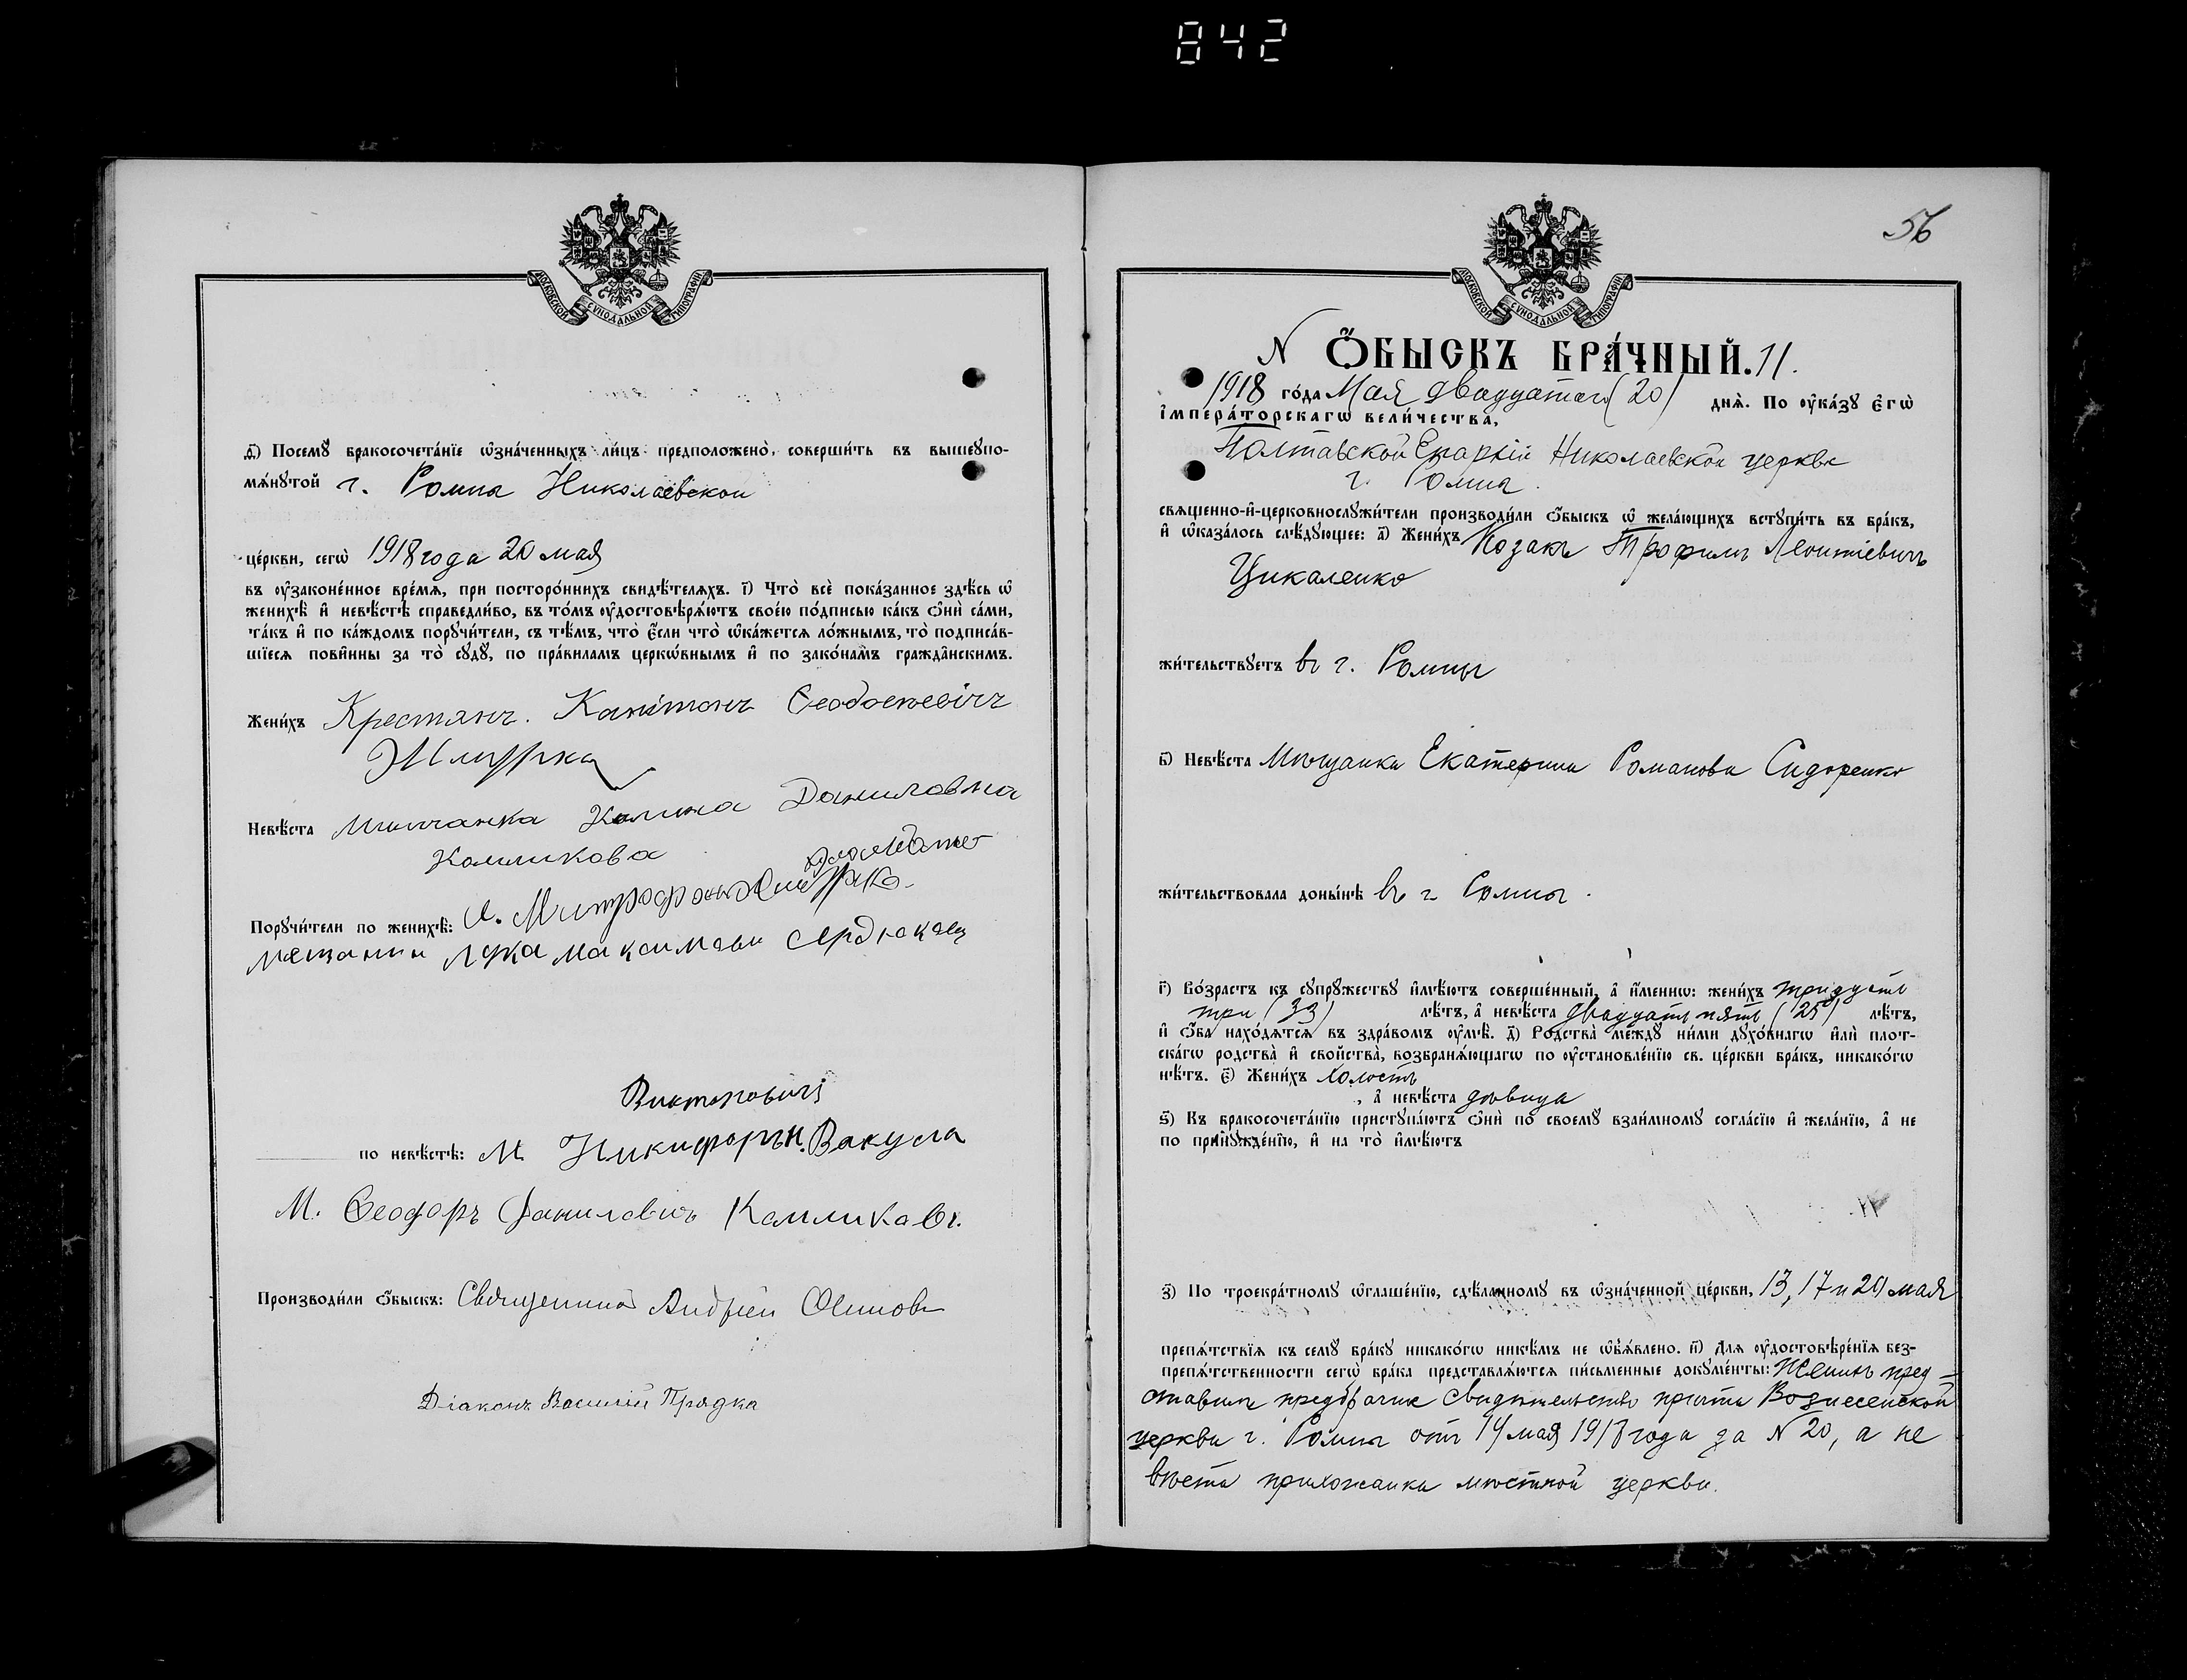 842
МОСКОВСКОЙ СѴНОДАЛЬНОЙ ТИПОГРАФІИ
ѳ҃) Посемꙋ бракосочета́нїе ѡ҆зна́ченныхъ ли́цъ предположено̀, соверши́ть въ вышеꙋпо-
мѧ́нꙋтой г. Ромна Николаевской
це́ркви, сегѡ̀ 1918 года 20 мая
въ ᲂу҆зако́не́нное вре́мѧ, при посторо́ннихъ свидѣ́телѧхъ. і҃) Что̀ всѐ пока́занное здѣ́сь ѡ҆
женихѣ̀ и҆ невѣ́стѣ справедли́во, въ то́мъ ᲂу҆достовѣрѧ́ютъ свое́ю по́дписью ка́къ ѻ҆нѝ са́ми,
та́къ и҆ по ка́ждомъ порꙋчи́тели, съ тѣ́мъ, что̀ є҆́сли что̀ ѡ҆ка́жетсѧ ло́жнымъ, то̀ подписа́в-
шїесѧ пови́нны за то̀ сꙋдꙋ̀, по пра́виламъ церко́внымъ и҆ по зако́намъ гражда́нскимъ.
Жени́хъ Крестянъ. Капітонъ Ѳеодосіевічъ
Шмурка
Невѣ́ста Мищанка Даниловна
Камликова
Порꙋчи́тели по женихѣ̀: Митрофанъ
мещанин Лука Максимовъ Сердюкъ
Викторовичъ
по невѣ́стѣ: М. Никифоръ Н. Вакула
М. Ѳеодоръ Даниловичъ Камликовъ.
Производи́ли ѻ҆́быскъ: Священникъ Андрей
Діаконъ Василій Прядка
56
МОСКОВСКОЙ СѴНОДАЛЬНОЙ ТИПОГРАФІИ
N Ѻ҆́БЫСКЪ БРА́ЧНЫЙ. 11.
1918 го́да Мая двадцатаго (20) днѧ̀. По ᲂу҆ка́зꙋ є҆гѡ̀
і҆мпера́торскагѡ вели́чества,
Полтавской Епархіи Николаевской церкви
г. Ромна.
свѧще́нно-и҆-церковнослꙋжи́тели производи́ли ѻ҆́быскъ ѡ҆ жела́ющихъ встꙋпи́ть въ бра́къ,
и҆ ѡ҆каза́лось слѣ́дꙋющее: а҃) Жени́хъ Козакъ Трофимъ Леонтіевичъ
Цикаленко
жи́тельствꙋетъ въ г. Ромны
в҃) Невѣ́ста Мѣщанка Екатерина Романова Сидоренко
жи́тельствовала доны́нѣ въ г. Ромны.
г҃) Во́зрастъ къ сꙋпрꙋ́жествꙋ и҆мѣ́ютъ соверше́нный, а҆ и҆́меннѡ: жени́хъ тридцать
три (33) лѣ́тъ, а҆ невѣ́ста двадцать пять (25) лѣ́тъ,
и҆ ѻ҆́ба нахо́дѧтсѧ въ здра́вомъ ᲂу҆мѣ̀. д҃) Родства̀ ме́ждꙋ ни́ми дꙋхо́внагѡ и҆лѝ плот-
ска́гѡ родства̀ и҆ свойства̀, возбранѧ́ющагѡ по ᲂу҆становле́нїю св. це́ркви бра́къ, никако́гѡ
нѣ́тъ. є҃) Жени́хъ холостъ
, а҆ невѣ́ста дѣвица
ѕ҃) Къ бракосочета́нїю пристꙋпа́ютъ ѻ҆нѝ по своемꙋ̀ взаи́мномꙋ согла́сїю и҆ жела́нїю, а҆ не
по принꙋжде́нїю, и҆ на то̀ и҆мѣ́ютъ
з҃) По троекра́тномꙋ ѡ҆глаше́нїю, сдѣ́ланномꙋ въ ѡ҆зна́ченной це́ркви, 13, 17 и 20 мая
препѧ́тствїѧ къ семꙋ̀ бра́кꙋ никако́гѡ никѣ́мъ не ѡ҆б̾ѧ́влено. и҃) Длѧ ᲂу҆достовѣре́нїѧ без-
препѧ́тственности сегѡ̀ бра́ка представлѧ́ютсѧ пи́сьменные докꙋме́нты: Женихъ пред=
ставилъ предбрачное свидѣтельство причта Вознесенской
церкви г. Ромна отъ 14 мая 1918 года за N 20, а не
вѣста прихожанка мѣстной церкви.